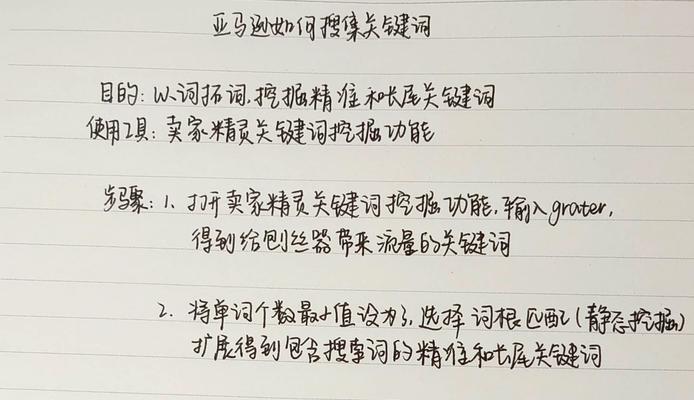 亚马逊如何搜集关键词
目的：以词拓词，挖掘精准和长尾关键词
使用工具：卖家精灵关键词挖掘功能
步骤：1、打开卖家精灵关键词挖掘功能，输入grater，
得到给刨丝器带来流量的关键词
2、将单词个数最小值设为3，选择词根匹配（静态挖掘）
扩展得到包含搜索词的精准和长尾关键词